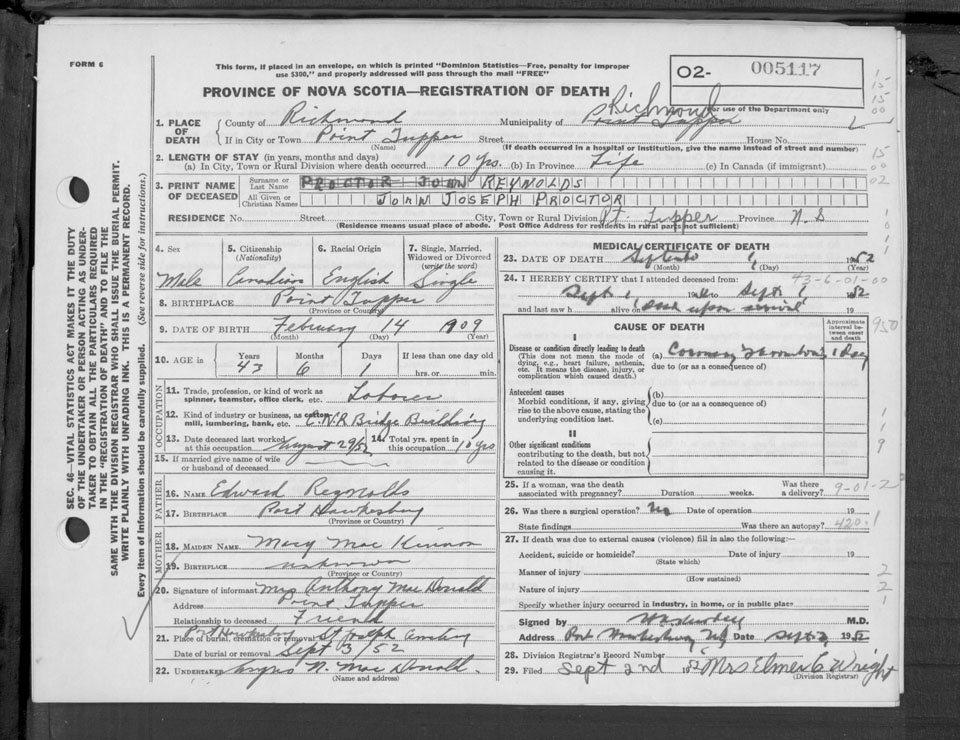 FORM 6
This form, if placed in an envelope, on which is printed "Dominion Statistics—Free, penalty for improper
use $300," and properly addressed will pass through the mail "FREE"
O2- 005117
PROVINCE OF NOVA SCOTIA—REGISTRATION OF DEATH
For use of the Department only
1. PLACE OF DEATH County of Richmond Municipality of Richmond Point Tupper
If in City or Town Point Tupper Street House No.
(Name) (If death occurred in a hospital or institution, give the name instead of street and number)
2. LENGTH OF STAY (in years, months and days)
(a) In City, Town or Rural Division where death occurred 10 yrs. (b) In Province Life (c) In Canada (if immigrant)
3. PRINT NAME OF DECEASED Surname or Last Name PROCTOR JOHN REYNOLDS
All Given or Christian Names JOHN JOSEPH PROCTOR
RESIDENCE No. Street City, Town or Rural Division Pt. Tupper Province N.S
(Residence means usual place of abode. Post Office Address for residents in rural parts not sufficient)
4. Sex 5. Citizenship (Nationality) 6. Racial Origin 7. Single, Married, Widowed or Divorced (write the word)
Male Canadian English Single
8. BIRTHPLACE Point Tupper
(Province or Country)
9. DATE OF BIRTH February 14 1909
(Month) (Day) (Year)
10. AGE in Years Months Days If less than one day old
43 6 1 hrs. or min.
OCCUPATION
11. Trade, profession, or kind of work as
spinner, teamster, office clerk, etc. Laborer
12. Kind of industry or business, as cotton
mill, lumbering, bank, etc. C.N.R Bridge Building
13. Date deceased last worked
at this occupation August 29/52
14. Total yrs. spent in
this occupation 10 yrs
15. If married give name of wife
or husband of deceased
FATHER
16. NAME Edward Reynolds
17. BIRTHPLACE Port Hawkesbury
(Province or Country)
MOTHER
18. MAIDEN NAME Mary Mac Kinnon
19. BIRTHPLACE unknown
(Province or Country)
20. Signature of informant Mrs Anthony Mac Donald
Address Point Tupper
Relationship to deceased Friend
21. Place of burial, cremation or removal Port Hawkesbury St Joseph
Date of burial or removal Sept 3/52
22. UNDERTAKER Angus N. Mac Donald.
(Name and address)
MEDICAL CERTIFICATE OF DEATH
23. DATE OF DEATH 1, 1952
(Month) (Day) (Year)
24. I HEREBY CERTIFY that I attended deceased from: 43-6-01-00
Sept 1 19 to Sept 1 1952
and last saw h alive on dead upon arrival 19
CAUSE OF DEATH
Approximate interval between onset and death
I
Disease or condition directly leading to death
(This does not mean the mode of
dying, e.g., heart failure, asthenia,
etc. It means the disease, injury, or
complication which caused death.)
(a) Coronary Thrombosis 1 Day
due to (or as a consequence of)
Antecedent causes
Morbid conditions, if any, giving
rise to the above cause, stating the
underlying condition last.
(b)
due to (or as a consequence of)
(c)
II
Other significant conditions
contributing to the death, but not
related to the disease or condition
causing it.
25. If a woman, was the death
associated with pregnancy? Duration weeks. Was there
a delivery? 9-01-2
26. Was there a surgical operation? No Date of operation 19
State findings Was there an autopsy? 420.1
27. If death was due to external causes (violence) fill in also the following:—
Accident, suicide or homicide? Date of injury 19
(State which)
Manner of injury
(How sustained)
Nature of injury
Specify whether injury occurred in industry, in home, or in public place
Signed by M.D.
Address Port Hawkesbury NS Date Sept 2 1952
28. Division Registrar's Record Number
29. Filed Sept 2nd 1952 Mrs Elmer C. Wright
(Division Registrar)
SEC. 46—VITAL STATISTICS ACT MAKES IT THE DUTY
OF THE UNDERTAKER OR PERSON ACTING AS UNDER-
TAKER TO OBTAIN ALL THE PARTICULARS REQUIRED
IN THE "REGISTRATION OF DEATH" AND TO FILE THE
SAME WITH THE DIVISION REGISTRAR WHO SHALL ISSUE THE BURIAL PERMIT.
WRITE PLAINLY WITH UNFADING INK. THIS IS A PERMANENT RECORD.
Every item of information should be carefully supplied. (See reverse side for instructions.)
1
15
15
00
15
00
02
1
0
1
1
950
1
1
9
2
2
1